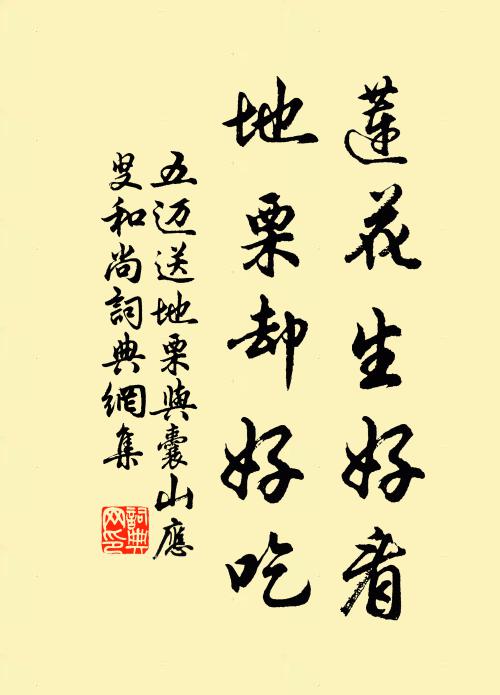 蓮花生好看
地栗却好吃
五迈送地栗與囊山應
叟和尚詞典網集
詞典网印